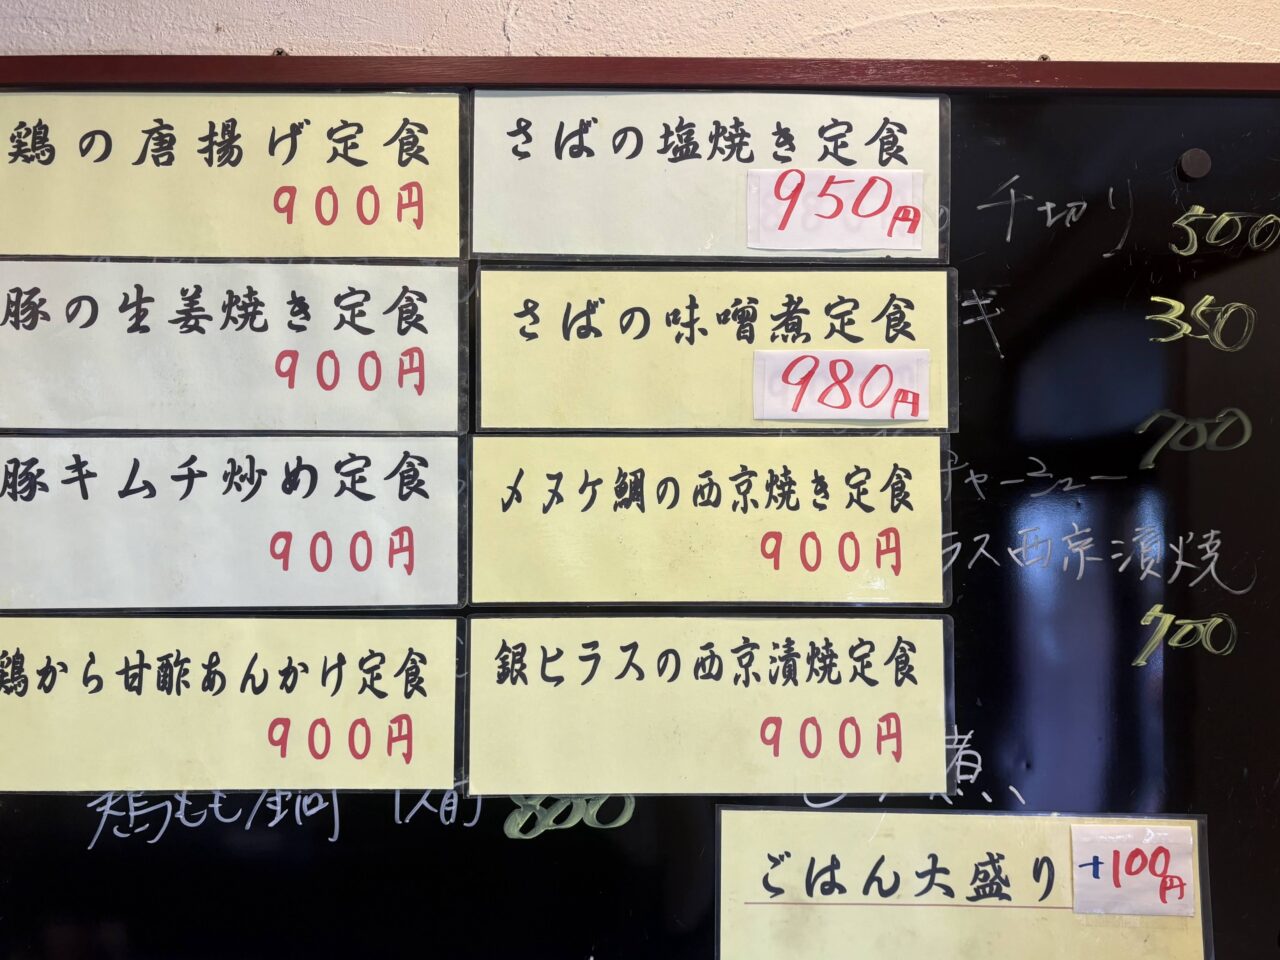 鶏の唐揚げ定食
900円
豚の生姜焼き定食
900円
豚キムチ炒め定食
900円
鶏から甘酢あんかけ定食
900円
さばの塩焼き定食
950円
さばの味噌煮定食
980円
メヌケ鯛の西京焼き定食
900円
銀ヒラスの西京漬焼定食
900円
の千切り
500
ギ
350
700
チャーシュー
ラス西京漬焼
700
煮
鶏もも 1人前 800
ごはん大盛り +100円